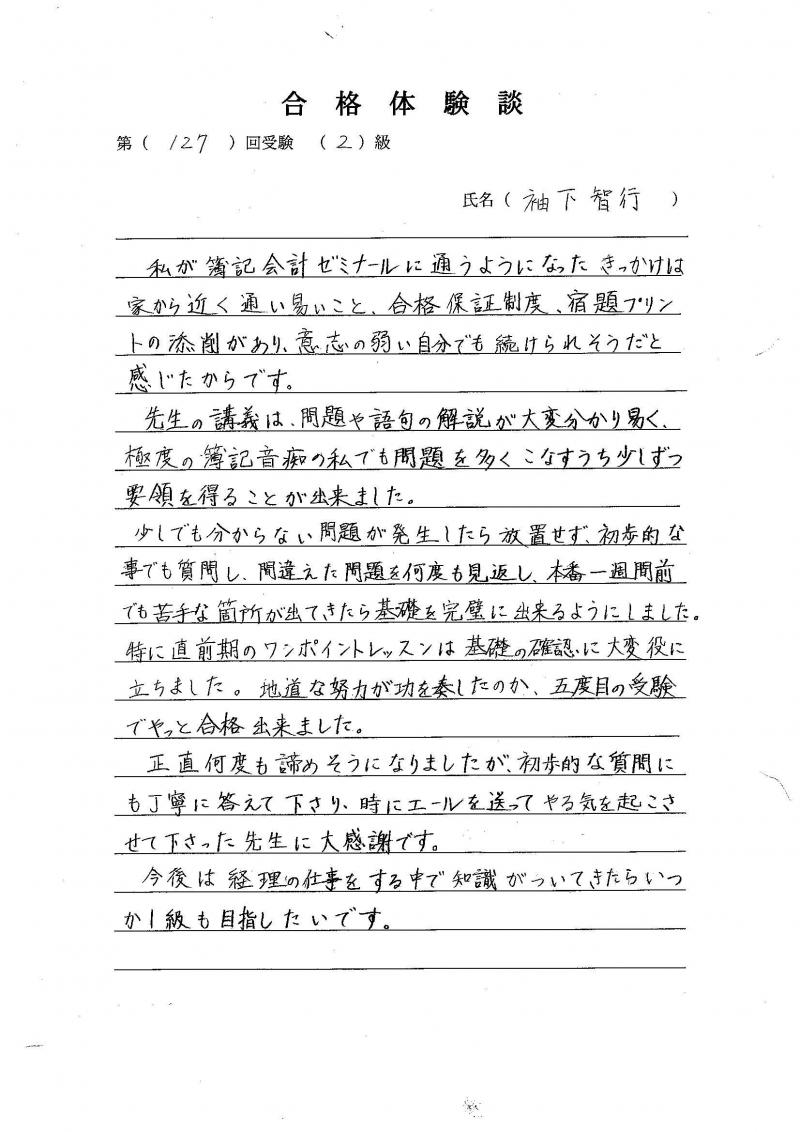 合格体験談
第（ 127 ）回受験 （ 2 ）級
氏名（ 袖下智行 ）
私が簿記会計ゼミナールに通うようになったきっかけは
家から近く通い易いこと、合格保証制度、宿題プリン
トの添削があり、意志の弱い自分でも続けられそうだと
感じたからです。
先生の講義は、問題や語句の解説が大変分かり易く、
極度の簿記音痴の私でも問題を多くこなすうち少しずつ
要領を得ることが出来ました。
少しでも分からない問題が発生したら放置せず、初歩的な
事でも質問し、間違えた問題を何度も見返し、本番一週間前
でも苦手な箇所が出てきたら基礎を完璧に出来るようにしました。
特に直前期のワンポイントレッスンは基礎の確認に大変役に
立ちました。地道な努力が功を奏したのか、五度目の受験
でやっと合格出来ました。
正直何度も諦めそうになりましたが、初歩的な質問に
も丁寧に答えて下さり、時にエールを送ってやる気を起こさ
せて下さった先生に大感謝です。
今後は経理の仕事をする中で知識がついてきたらいつ
か1級も目指したいです。